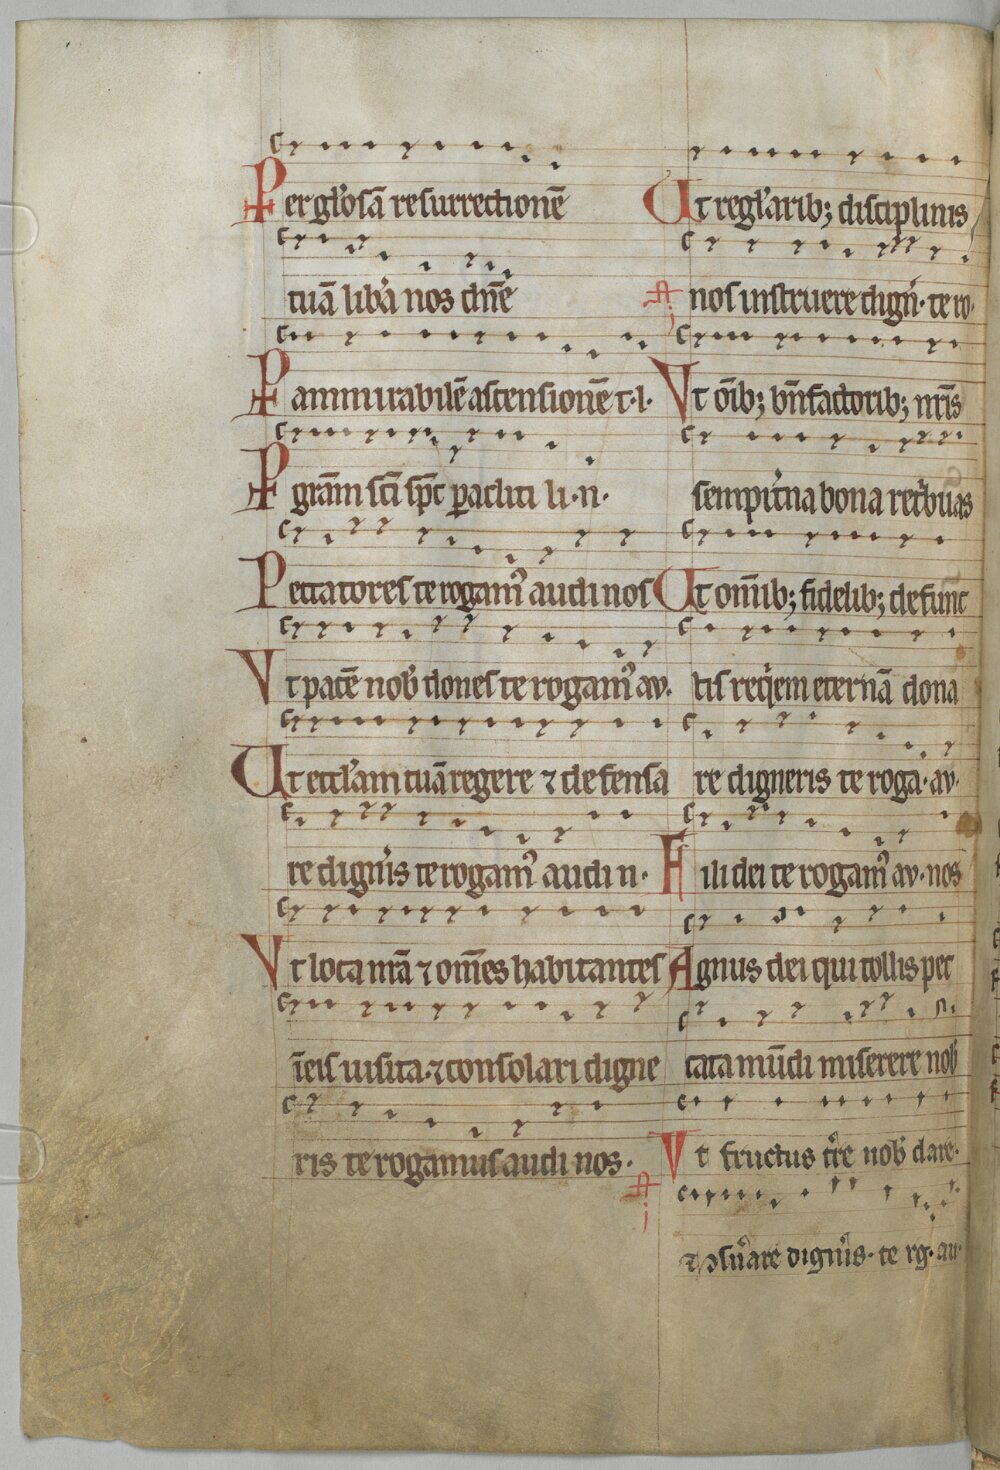 Per gl'osā resurrectionē
tuā lib'a nos dn̄e
P ammirabilē ascensionē t·l·
P grām sc̄i sp̄c ꝑacliti li·n·
Peccatores te rogam᾽ audi nos
Vt pacē nob᾽ dones te rogam᾽ av·
Ut eccl'am tuā regere ⁊ defensa
re dign'is te rogam᾽ audi n·
Vt loca nr̄a ⁊ om̄es habitantes
ī eis uisita·⁊ consolari digne
ris te rogamus audi nos·
Ut regl'arib; disciplinis
nos instruere dign̄· te ro·
Vt ōib; bn̄factorib; nr̄is
sempit'na bona ret'buas
Ut om̄ib; fidelib; defunc
tis req'em eternā dona
re digneris te roga·av·
Fili dei te rogam᾽ av·nos
Agnus dei qui tollis pec
cata mūdi miserere nob᾽
Vt fructus t're nob᾽ dare·
⁊ ↄs'uare dign'is· te rg· au·